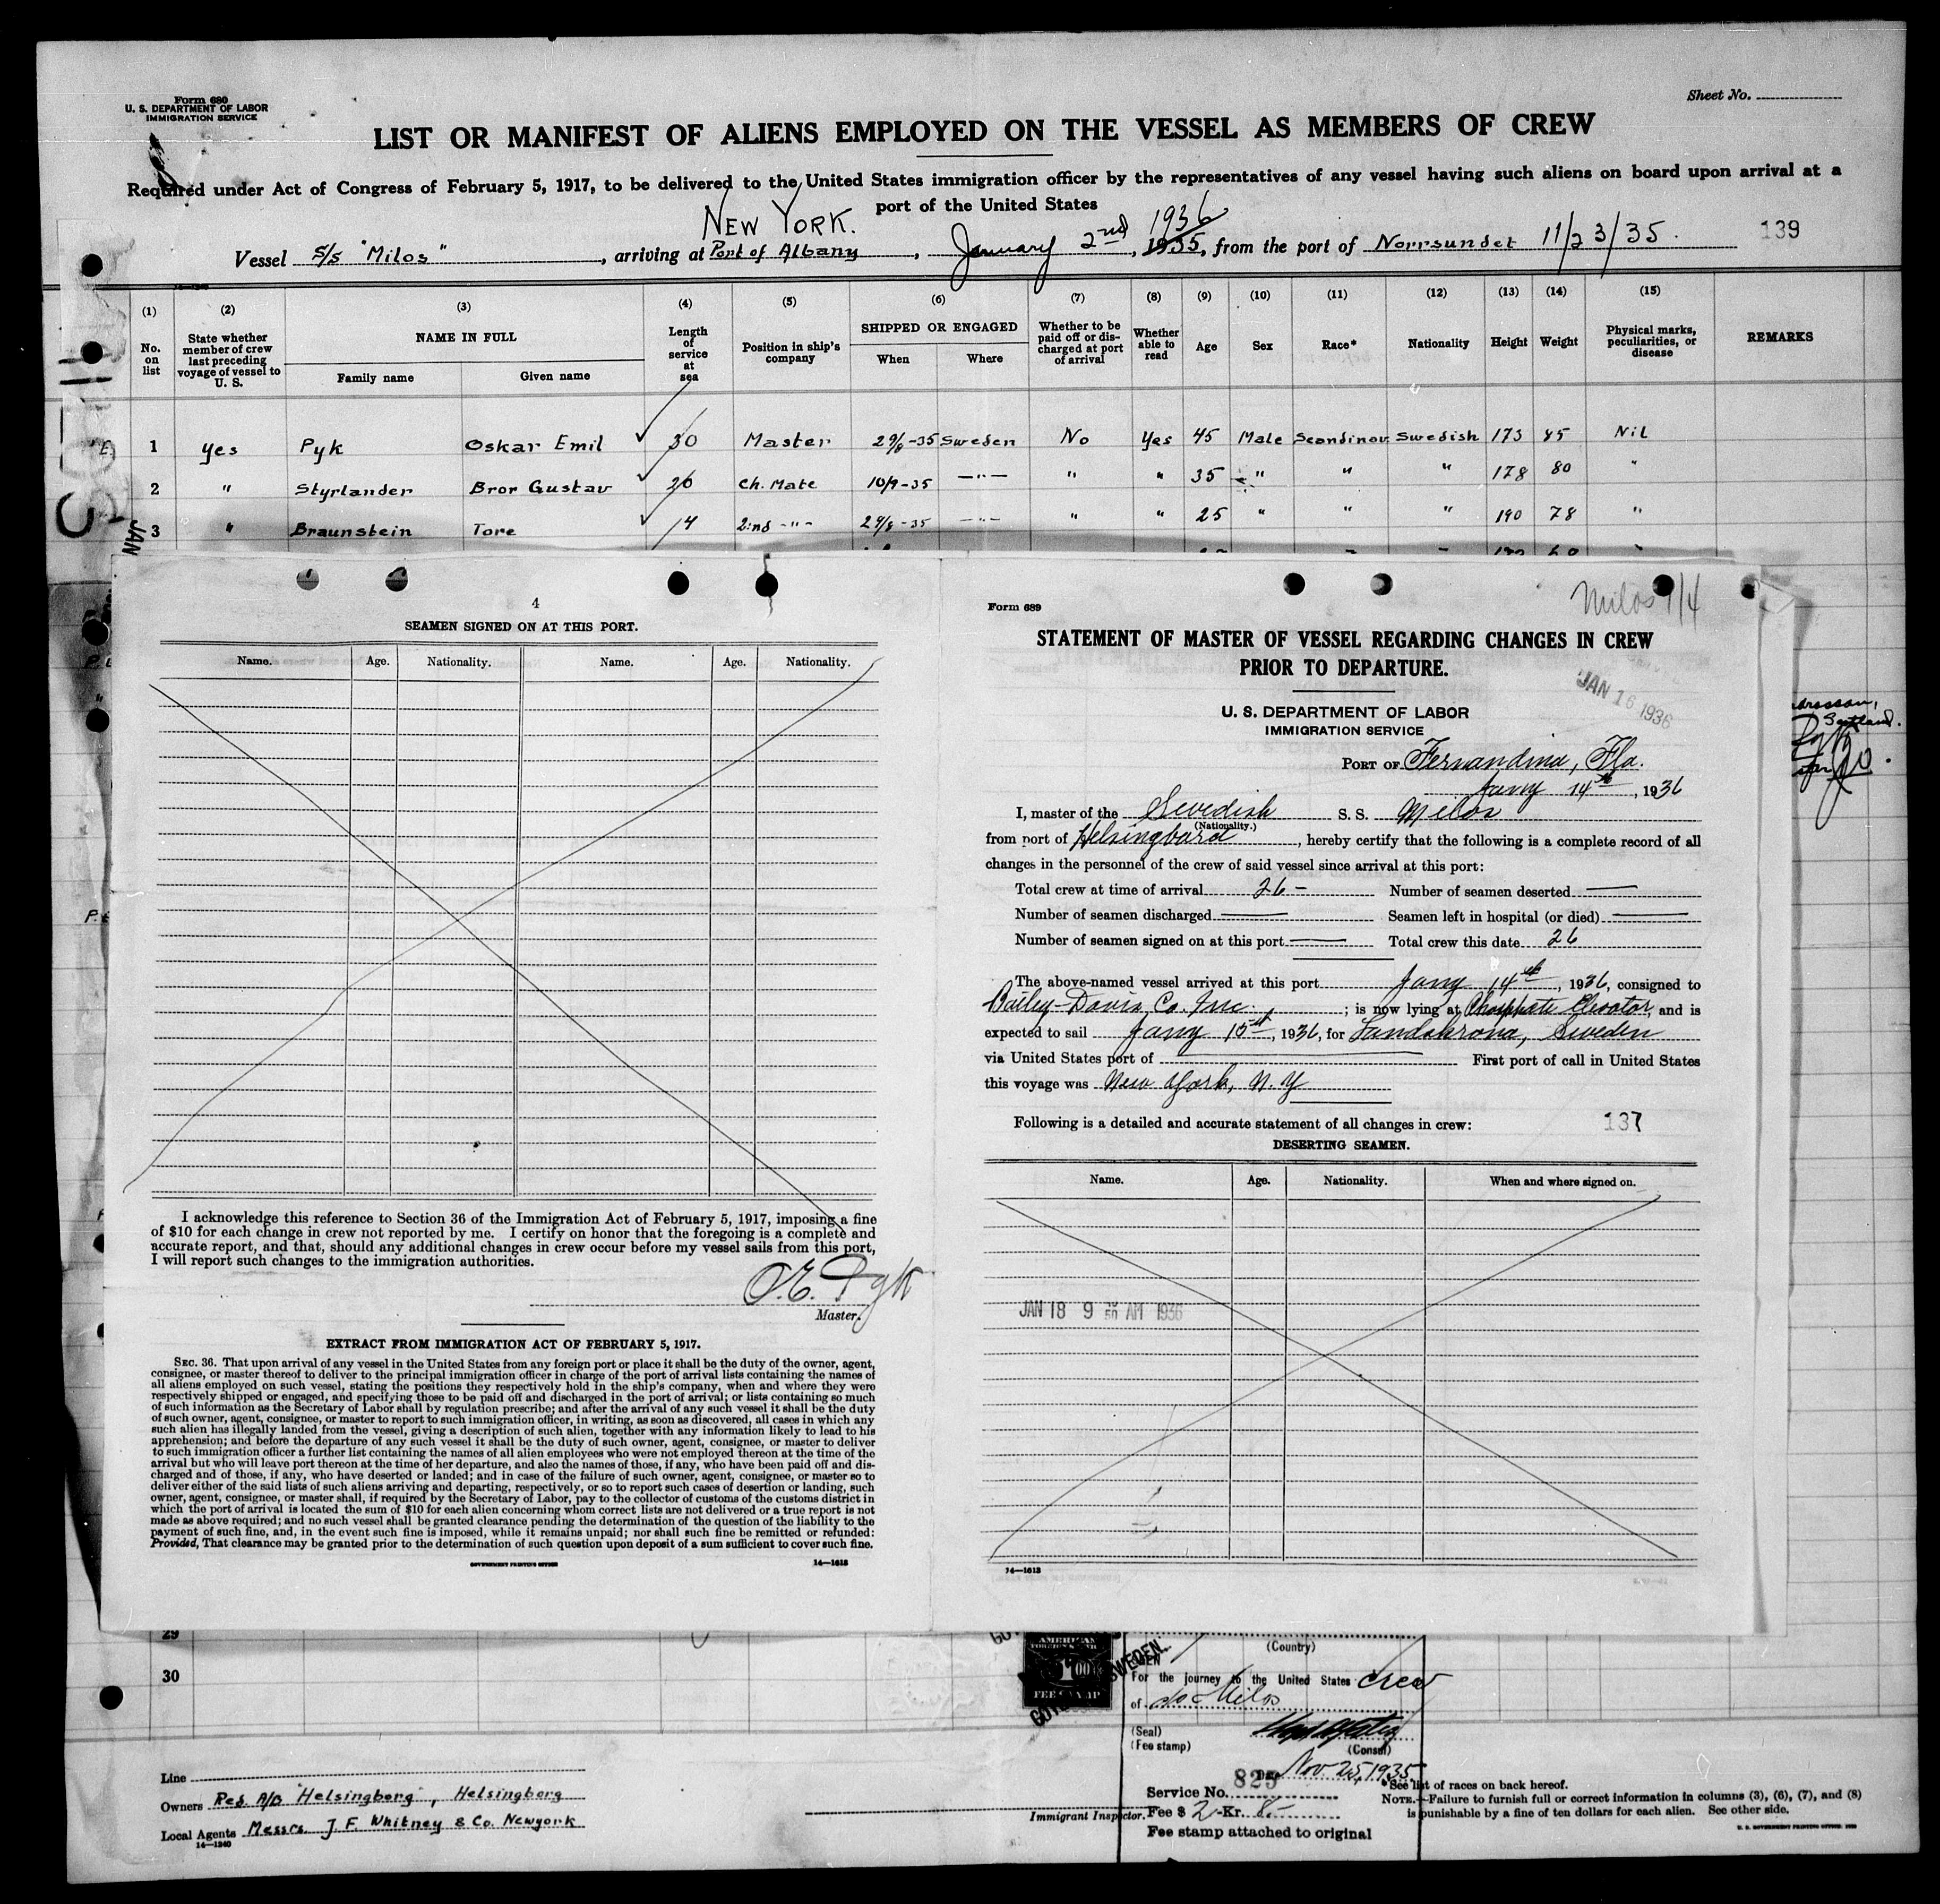 Form 680
U. S. DEPARTMENT OF LABOR
IMMIGRATION SERVICE
Sheet No.
LIST OR MANIFEST OF ALIENS EMPLOYED ON THE VESSEL AS MEMBERS OF CREW
Required under Act of Congress of February 5, 1917, to be delivered to the United States immigration officer by the representatives of any vessel having such aliens on board upon arrival at a
port of the United States
NEW YORK. 1936
Vessel S/S "Milos", arriving at Port of Albany, January 2nd, 1935, from the port of Norrsundet 11/23/35. 139
(1) (2) (3) (4) (5) (6) (7) (8) (9) (10) (11) (12) (13) (14) (15)
No. on list
State whether member of crew last preceding voyage of vessel to U. S.
NAME IN FULL
Family name Given name
Length of service at sea
Position in ship's company
SHIPPED OR ENGAGED
When Where
Whether to be paid off or discharged at port of arrival
Whether able to read
Age Sex Race* Nationality Height Weight
Physical marks, peculiarities, or disease
REMARKS
1 yes Pyk Oskar Emil 30 Master 29/8-35 Sweden No Yes 45 Male Scandinav. Swedish 173 85 Nil
2 " Styrlander Bror Gustav 26 Ch. Mate 10/9-35 -"- " " 35 " " " 178 80 "
3 " Braunstein Tore 14 2:nd -"- 29/8-35 -"- " " 25 " " " 190 78 "
JAN
4
SEAMEN SIGNED ON AT THIS PORT.
Name. Age. Nationality. Name. Age. Nationality.
I acknowledge this reference to Section 36 of the Immigration Act of February 5, 1917, imposing a fine
of $10 for each change in crew not reported by me. I certify on honor that the foregoing is a complete and
accurate report, and that, should any additional changes in crew occur before my vessel sails from this port,
I will report such changes to the immigration authorities.
O.E. Pyk
Master.
EXTRACT FROM IMMIGRATION ACT OF FEBRUARY 5, 1917.
SEC. 36. That upon arrival of any vessel in the United States from any foreign port or place it shall be the duty of the owner, agent,
consignee, or master thereof to deliver to the principal immigration officer in charge of the port of arrival lists containing the names of
all aliens employed on such vessel, stating the positions they respectively hold in the ship's company, when and where they were
respectively shipped or engaged, and specifying those to be paid off and discharged in the port of arrival; or lists containing so much
of such information as the Secretary of Labor shall by regulation prescribe; and after the arrival of any such vessel it shall be the duty
of such owner, agent, consignee, or master to report to such immigration officer, in writing, as soon as discovered, all cases in which any
such alien has illegally landed from the vessel, giving a description of such alien, together with any information likely to lead to his
apprehension; and before the departure of any such vessel it shall be the duty of such owner, agent, consignee, or master to deliver
to such immigration officer a further list containing the names of all alien employees who were not employed thereon at the time of the
arrival but who will leave port thereon at the time of her departure, and also the names of those, if any, who have been paid off and dis-
charged and of those, if any, who have deserted or landed; and in case of the failure of such owner, agent, consignee, or master so to
deliver either of the said lists of such aliens arriving and departing, respectively, or so to report such cases of desertion or landing, such
owner, agent, consignee, or master shall, if required by the Secretary of Labor, pay to the collector of customs of the customs district in
which the port of arrival is located the sum of $10 for each alien concerning whom correct lists are not delivered or a true report is not
made as above required; and no such vessel shall be granted clearance pending the determination of the question of the liability to the
payment of such fine, and, in the event such fine is imposed, while it remains unpaid; nor shall such fine be remitted or refunded:
Provided, That clearance may be granted prior to the determination of such question upon deposit of a sum sufficient to cover such fine.
GOVERNMENT PRINTING OFFICE 14—1613
Form 689
Milos 1/4
STATEMENT OF MASTER OF VESSEL REGARDING CHANGES IN CREW
PRIOR TO DEPARTURE.
JAN 16 1936
U. S. DEPARTMENT OF LABOR
IMMIGRATION SERVICE
PORT OF Fernandina, Fla.
Jany 14th, 1936
I, master of the Swedish S. S. Milos
(Nationality.)
from port of Helsingborg, hereby certify that the following is a complete record of all
changes in the personnel of the crew of said vessel since arrival at this port:
Total crew at time of arrival 26 - Number of seamen deserted —
Number of seamen discharged — Seamen left in hospital (or died) —
Number of seamen signed on at this port — Total crew this date 26
The above-named vessel arrived at this port Jany 14th, 1936, consigned to
Bailey-Davis Co. Inc.; is now lying at Phosphate Elevator, and is
expected to sail Jany 15th, 1936, for Landskrona, Sweden
via United States port of — First port of call in United States
this voyage was New York, N. Y
Following is a detailed and accurate statement of all changes in crew: 137
DESERTING SEAMEN.
Name. Age. Nationality. When and where signed on.
JAN 18 9 50 AM 1936
14—1613
Scotland.
29
30
AMERICAN
1.00
FEE STAMP
SWEDEN.
(Country)
For the journey to the United States crew
of ss Milos
(Seal)
(Fee stamp)
(Consul)
Nov. 25, 1935
Service No. 825
Fee $ 2 -Kr. 8.-
Fee stamp attached to original
Immigrant Inspector.
Line
Owners Red. A/B "Helsingborg", Helsingborg
Local Agents Messrs. J. F. Whitney & Co. Newyork
14—1240
*See list of races on back hereof.
NOTE.—Failure to furnish full or correct information in columns (3), (6), (7), and (8)
is punishable by a fine of ten dollars for each alien. See other side.